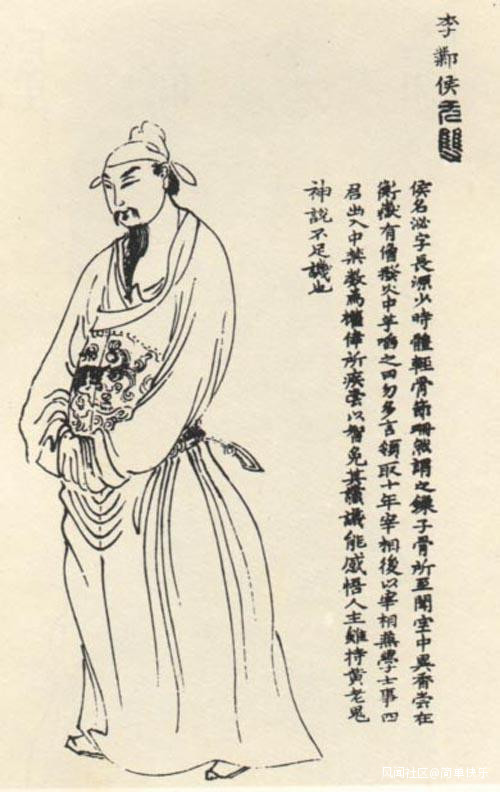 李鄴侯无雙
侯名泌字長源少時體輕骨節珊然謂之鏁子骨所至聞空中異香嘗在
衡嶽有僧撥火中芋啗之曰勿多言領取十年宰相後以宰相兼學士事四
君出入中禁數為權倖所疾以智免其讜議能感悟人主雖持黄老鬼
神說不足譏也
风闻社区@简单快乐